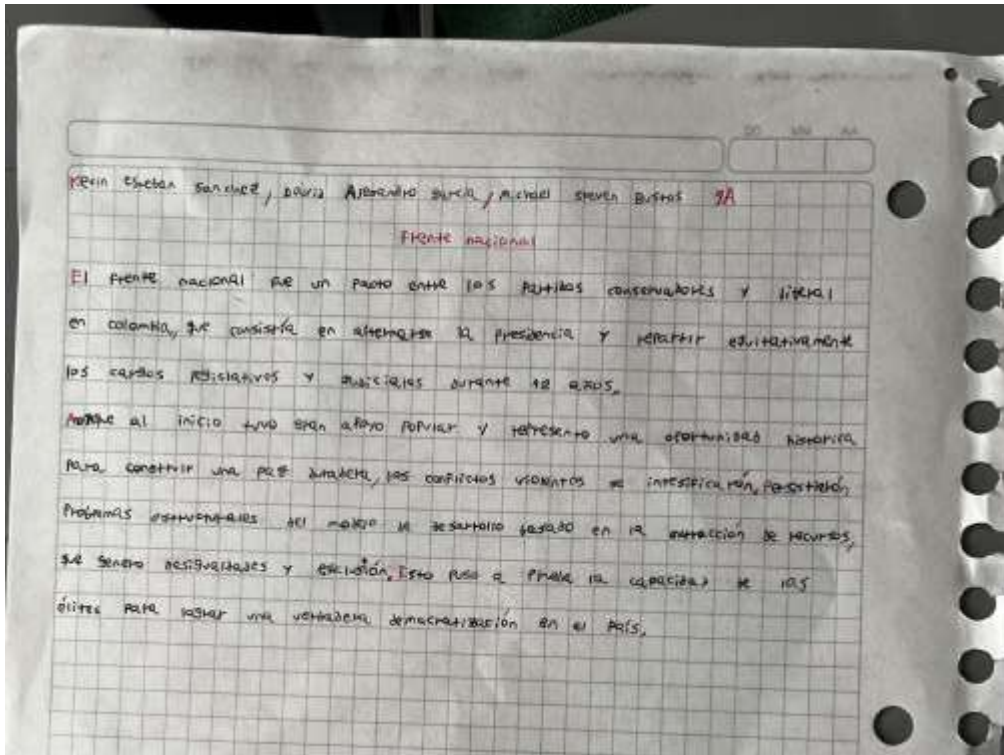 Kevin Esteban Sanchez, David Alejandro Garcia, Michael Steven Bustos 9A
Frente nacional
El Frente nacional fue un pacto entre los partidos conservadores y liberal
en colombia, que consistía en alternarse la presidencia y repartir equitativamente
los cargos legislativos y judiciales durante 12 años.
Aunque al inicio tuvo gran apoyo popular y represento una oportunidad historica
para construir una paz duradera, los conflictos violentos se intesificarón, Persistierón
Problemas estructurales del modelo de desarrollo basado en la extracción de recursos,
que genero desigualdades y exclusión, Esto puso a prueba la capacidad de las
élites para lograr una verdadera democratización en el País.